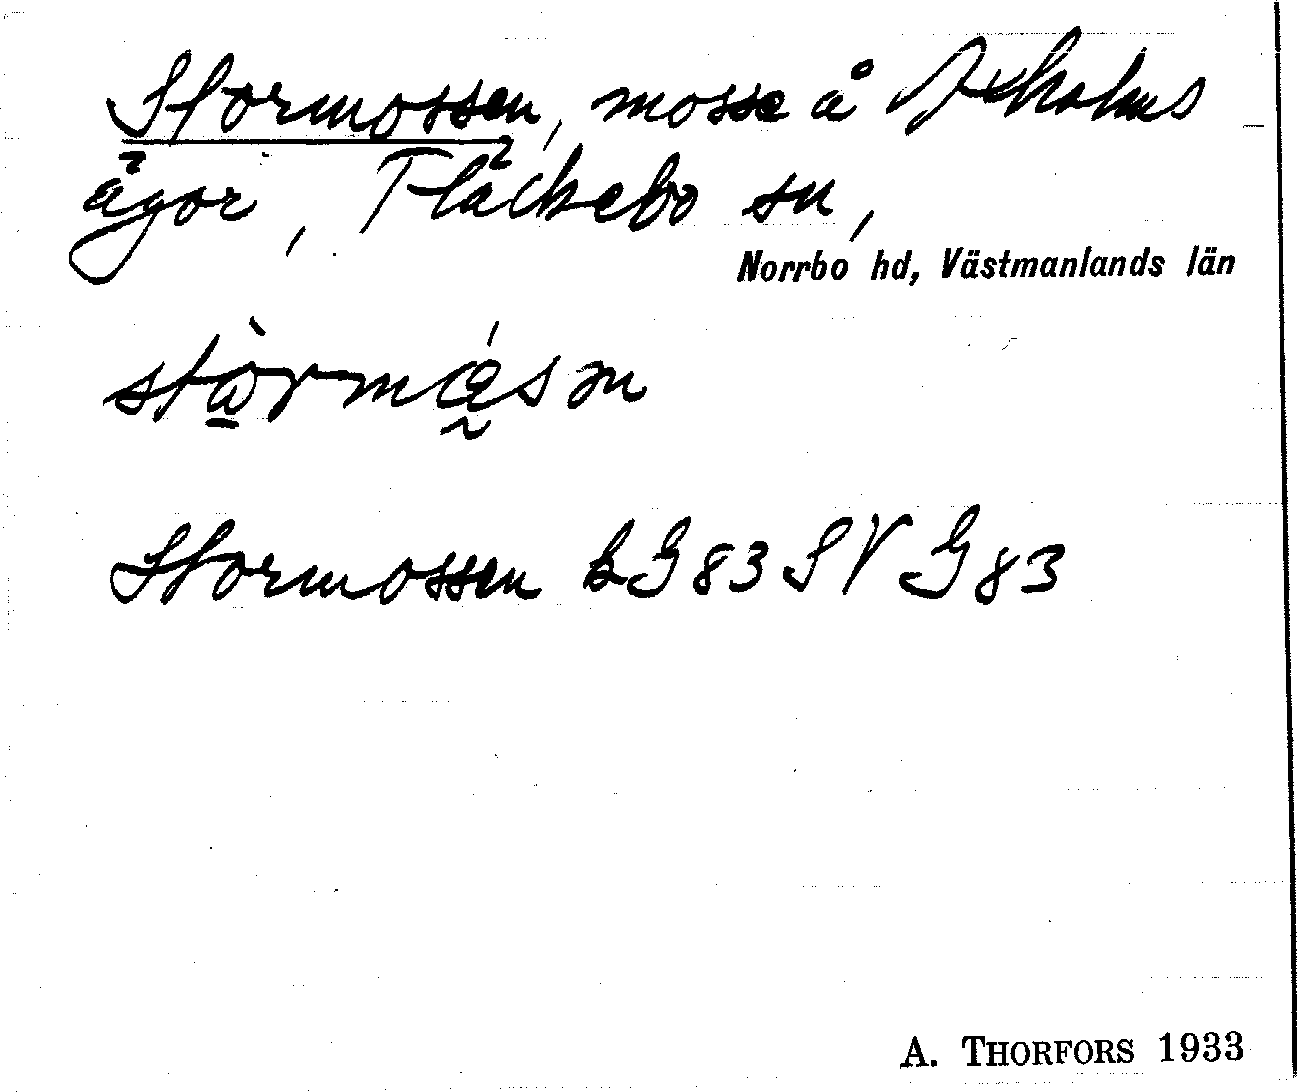 Stormossen, mosse å Axholms
ägor, Fläckebo sn,
Norrbo hd, Västmanlands län
stòrmǻsn
Stormossen bG83 SV G83
A. THORFORS 1933